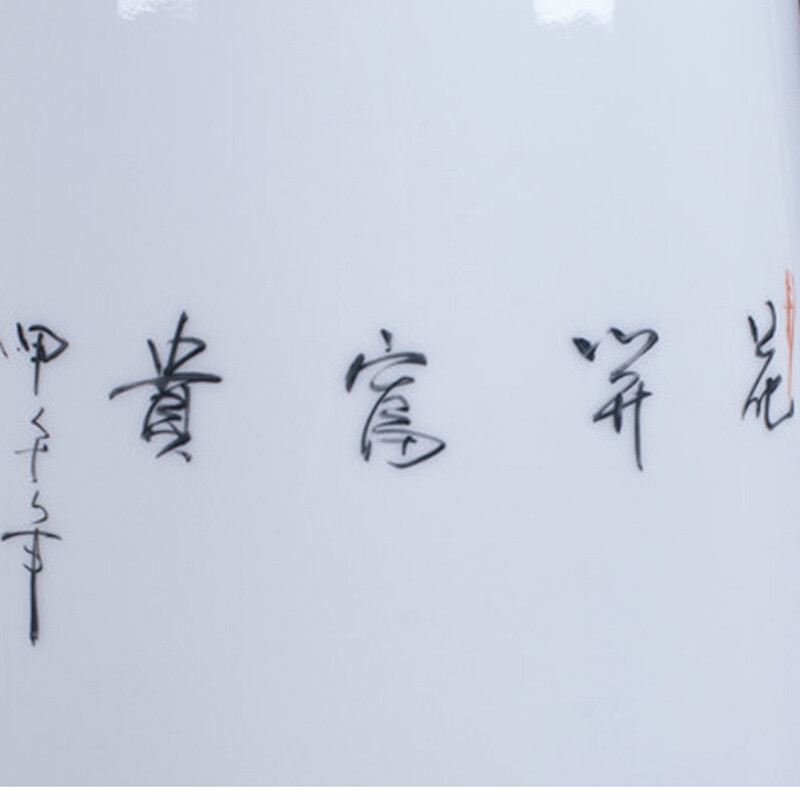 花開富貴
甲午年